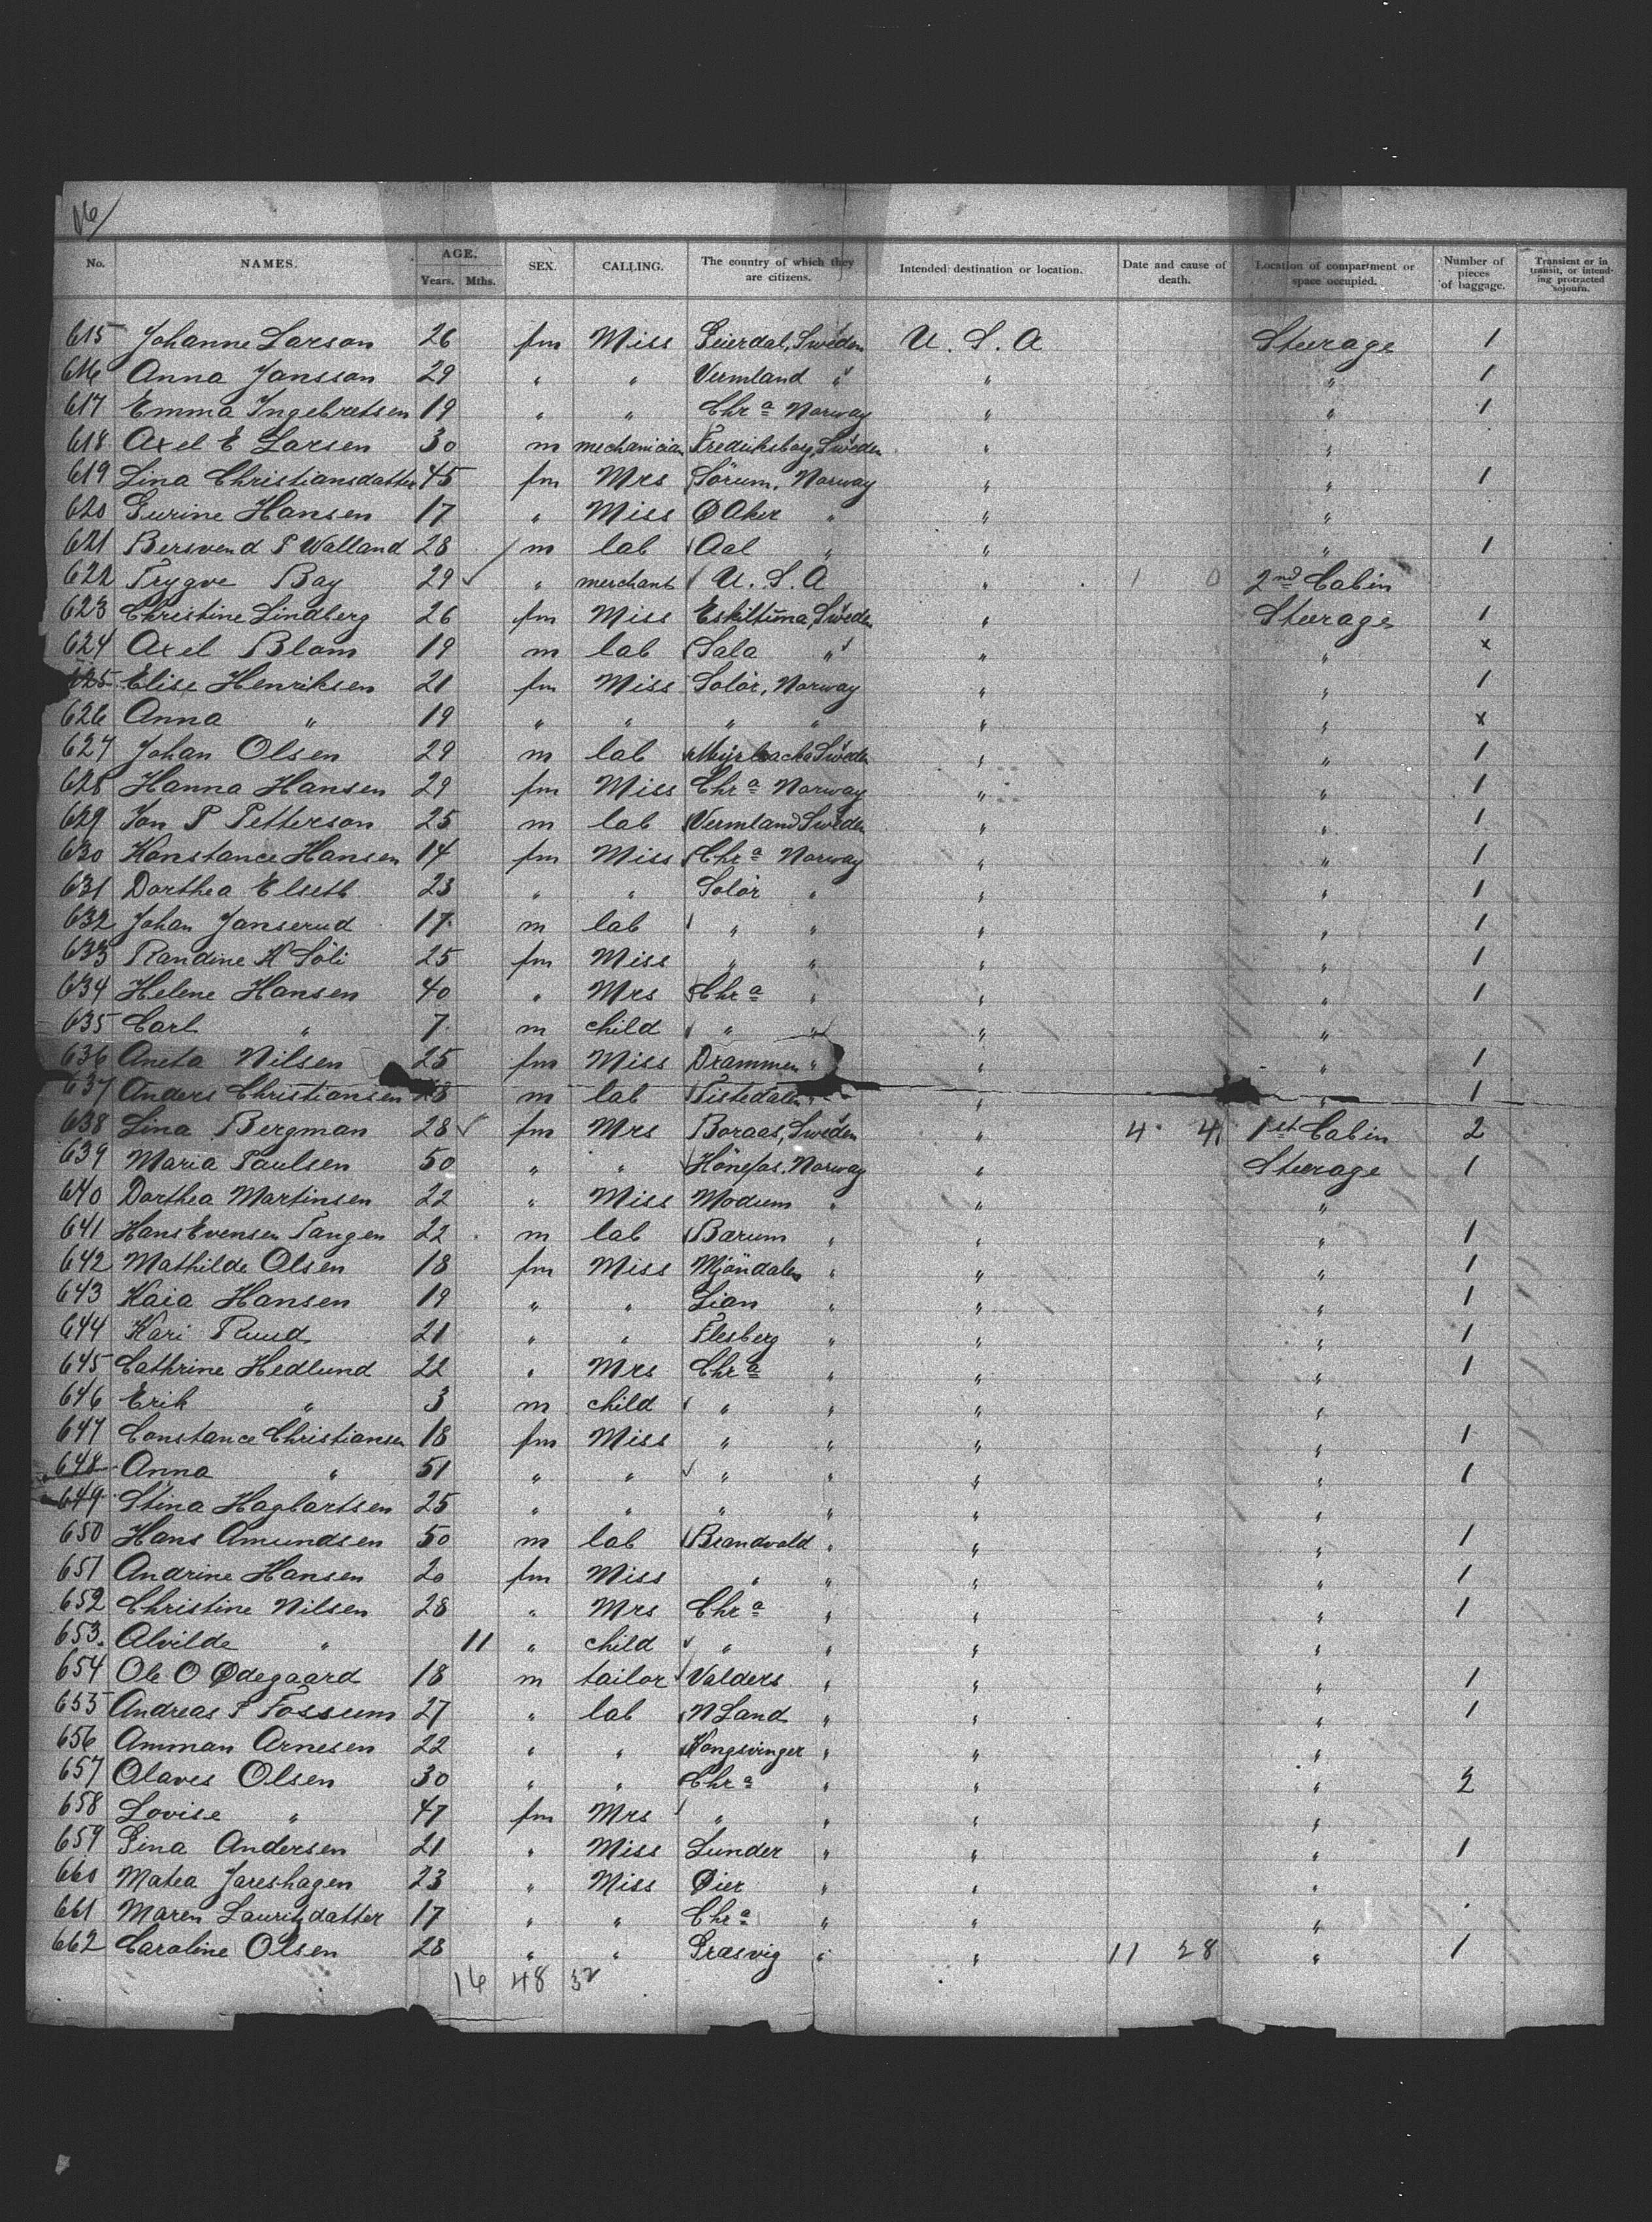 16/
No. NAMES. AGE. Years. Mths. SEX. CALLING. The country of which they are citizens. Intended destination or location. Date and cause of death. Location of compartment or space occupied. Number of pieces of baggage. Transient or in transit, or intending protracted sojourn.
615 Johanne Larson 26 fm Miss Geierdal, Sweden U. S. A Steerage 1
616 Anna Jansson 29 " " Vermland " " " 1
617 Emma Ingebretsen 19 " " Chra Norway " " 1
618 Axel E Larsen 30 m mechanician Fredriksborg, Sweden " "
619 Lina Christiansdatter 45 fm Mrs Sörum, Norway " " 1
620 Gurine Hansen 17 " Miss Ø Aker " " "
621 Bersvend P Walland 28 m lab Aal " " " 1
622 Trygve Bay 29 ✓ " merchant U. S. A " 1 0 2nd Cabin
623 Christine Lindberg 26 fm Miss Eskiltuna, Sweden " Steerage 1
624 Axel Blom 19 m lab Sala " " " x
625 Elise Henriksen 21 fm Miss Solör, Norway " " 1
626 Anna " 19 " " " " " " x
627 Johan Olsen 29 m lab Sweden " " 1
628 Hanna Hansen 29 fm Miss Chra Norway " " 1
629 Jon P Petterson 25 m lab Vermland Sweden " " 1
630 Konstance Hansen 14 fm Miss Chra Norway " " 1
631 Dorthea Elseth 23 " " Solör " " " 1
632 Johan Janserud 17 m lab " " " " 1
633 Randine K Söli 25 fm Miss " " " " 1
634 Helene Hansen 40 " Mrs Chra " " " 1
635 Carl " 7 m child " " " "
636 Aneta Nilsen 25 fm Miss Drammen " " " 1
637 Anders Christiansen 28 m lab Tistedalen " " " 1
638 Lina Bergman 28 ✓ fm Mrs Boraas, Sweden " 4 4 1st Cabin 2
639 Maria Paulsen 50 " " Hönefos, Norway " Steerage 1
640 Dorthea Martinsen 22 " Miss Modum " " "
641 Hans Evensen Tangen 22 m lab Bærum " " " 1
642 Mathilde Olsen 18 fm Miss Mjöndalen " " " 1
643 Kaia Hansen 19 " " Lian " " " 1
644 Kari Ruud 21 " " Flesberg " " " 1
645 Cathrine Hedlund 22 " Mrs Chra " " " 1
646 Erik " 3 m child " " " "
647 Constance Christiansen 18 fm Miss " " " " 1
648 Anna " 51 " " ✓ " " " " 1
649 Stina Hagbartsen 25 " " " " " "
650 Hans Amundsen 50 m lab Brandvold " " " 1
651 Andrine Hansen 20 fm Miss " " " " 1
652 Christine Nilsen 28 " Mrs Chra " " " 1
653 Alvilde " 11 " child ✓ " " " "
654 Ole O Ødegaard 18 m tailor Valders " " " 1
655 Andreas P Fossum 27 " lab N Land " " " 1
656 Amman Arnesen 22 " " Kongsvinger " " "
657 Olaves Olsen 30 " " Chra " " " 2
658 Lovise " 47 fm Mrs " " " "
659 Gina Andersen 21 " Miss Lunder " " " 1
660 Matea Jareshagen 23 " Miss Øier " " "
661 Maren Lauritzdatter 17 " " Chra " " "
662 Caroline Olsen 28 " " Græsvig " " 11 28 " 1
16 48 32